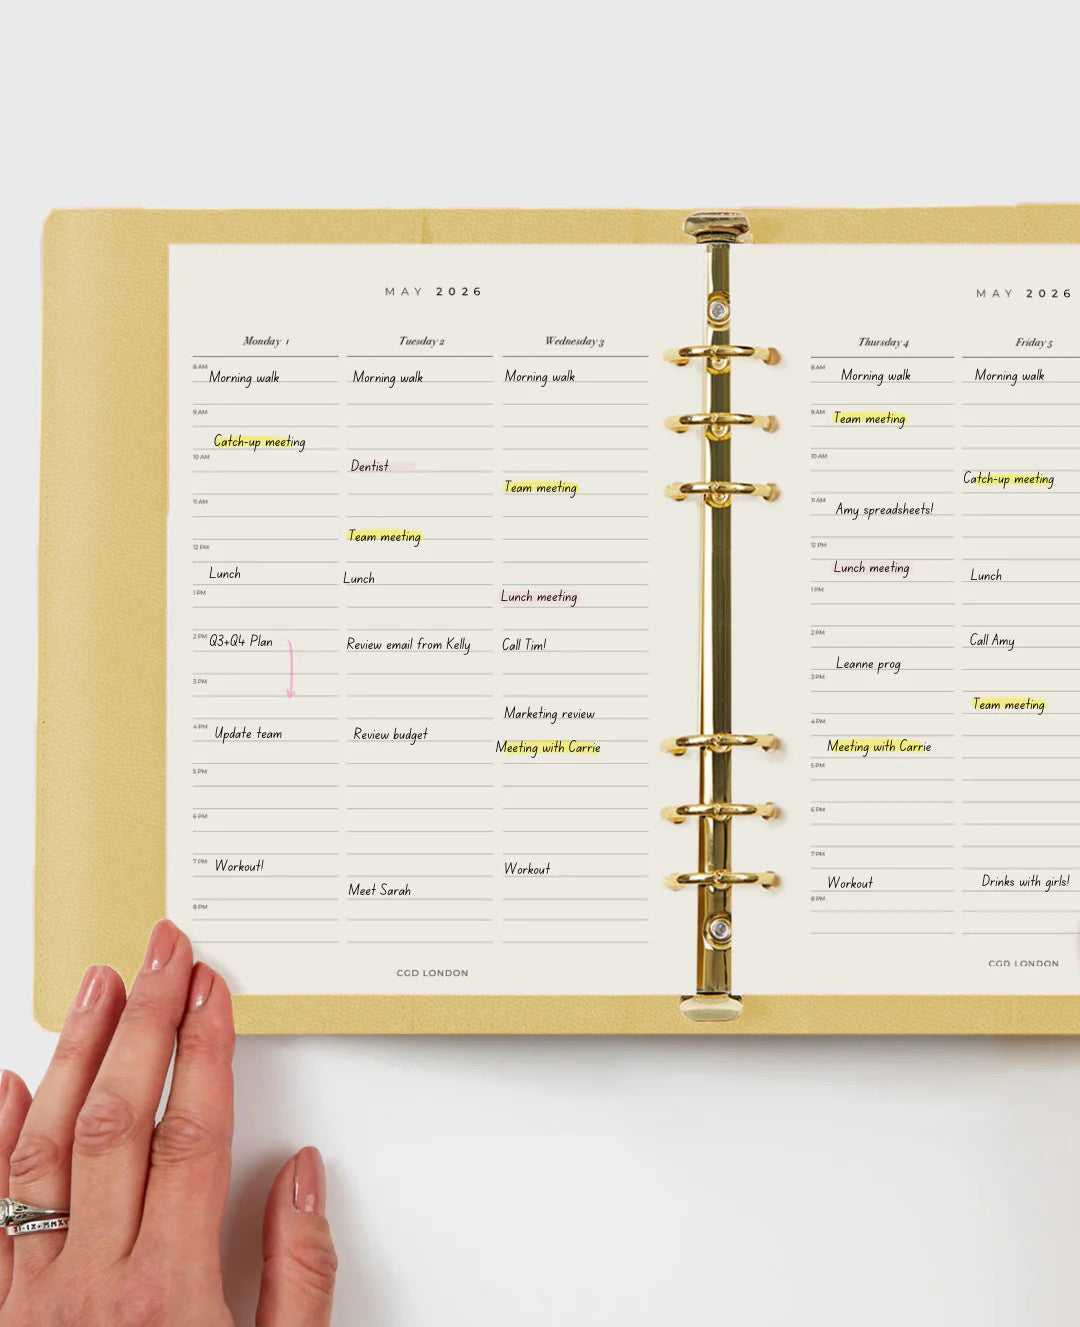 MAY 2026
Monday 1
8 AM
Morning walk
9 AM
Catch-up meeting
10 AM
11 AM
12 PM
Lunch
1 PM
2 PM
Q3+Q4 Plan
3 PM
4 PM
Update team
5 PM
6 PM
7 PM
Workout!
8 PM
Tuesday 2
Morning walk
Dentist
Team meeting
Lunch
Review email from Kelly
Review budget
Meet Sarah
Wednesday 3
Morning walk
Team meeting
Lunch meeting
Call Tim!
Marketing review
Meeting with Carrie
Workout
CGD LONDON
MAY 2026
Thursday 4
8 AM
Morning walk
9 AM
Team meeting
10 AM
11 AM
Amy spreadsheets!
12 PM
Lunch meeting
1 PM
2 PM
Leanne prog
3 PM
4 PM
Meeting with Carrie
5 PM
6 PM
7 PM
Workout
8 PM
Friday 5
Morning walk
Catch-up meeting
Lunch
Call Amy
Team meeting
Drinks with girls!
CGD LONDON